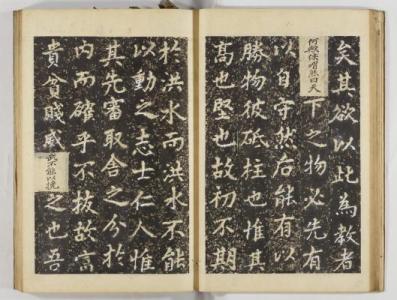 矣其欲以此為教者
何保喟然曰天下之物必先有
以自守然后能有以
勝物彼砥柱也惟其
高也堅也故初不期
於洪水而洪水不能
以動之志士仁人惟
其先審取舍之分於
內而確乎不拔故富
貴貧賤威武不能以撓之也吾